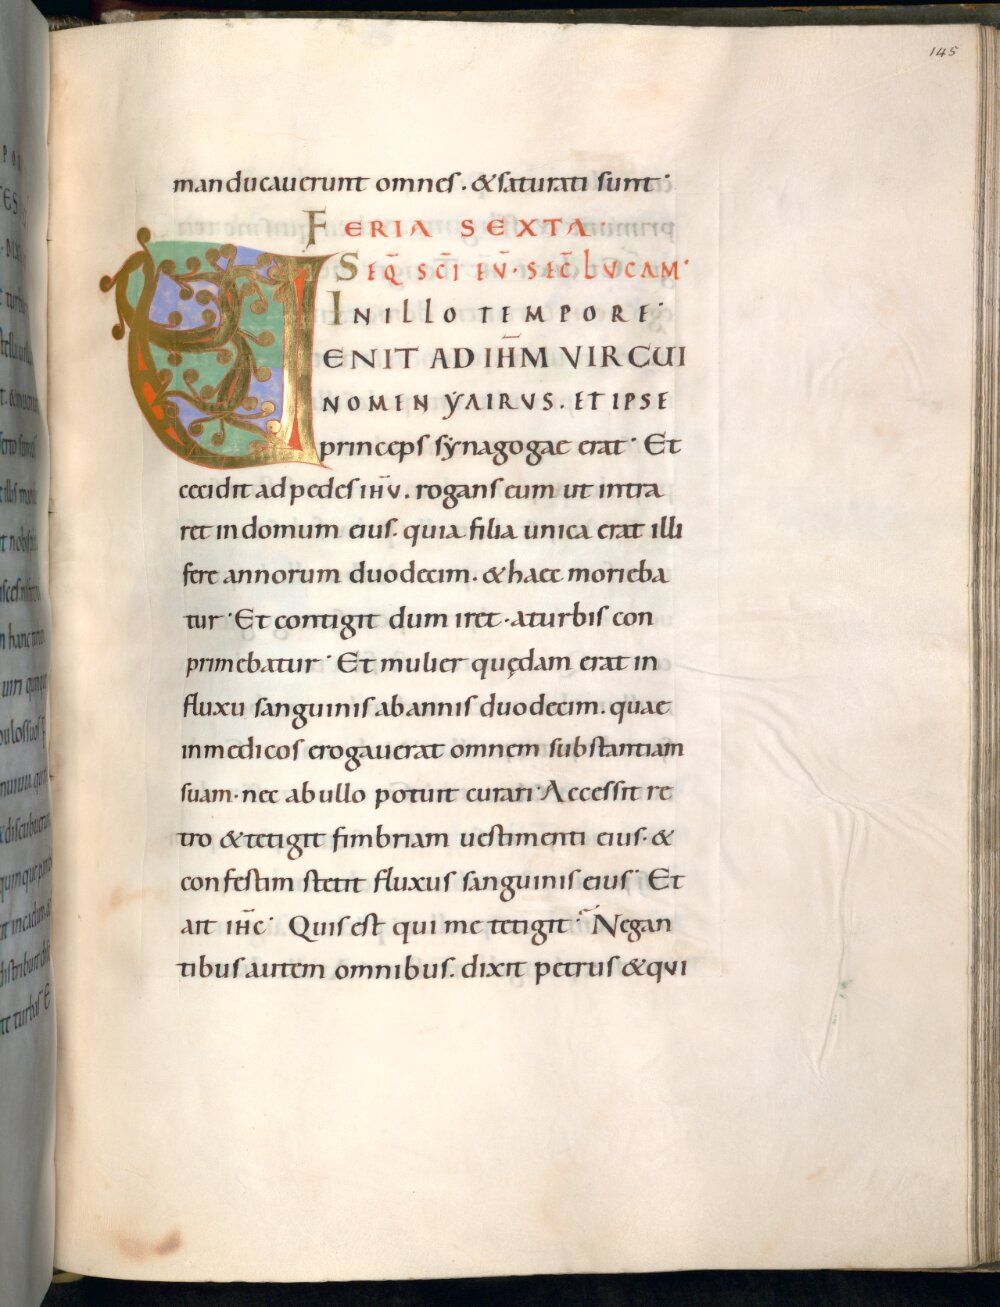 145
manducauerunt omnes. & saturati sunt.
FERIA SEXTA
SEQ̄ SC̄I EV̄. SEC̄ LVCAM.
IN ILLO TEMPORE.
VENIT AD IH̄M VIR CUI
NOMEN ẎAIRVS. ET IPSE
princeps sẏnagogae erat. Et
cecidit ad pedes IH̄V. rogans eum ut intra
ret in domum eius. quia filia unica erat illi
fere annorum duodecim. & haec morieba
tur. Et contigit dum iret. a turbis con
primebatur. Et mulier quędam erat in
fluxu sanguinis ab annis duodecim. quae
in medicos erogauerat omnem substantiam
suam. nec ab ullo potuit curari. Accessit re
tro & tetigit fimbriam uestimenti eius. &
confestim stetit fluxus sanguinis eius. Et
ait IH̄C. Quis est qui me tetigit. Negan
tibus autem omnibus. dixit petrus & qui